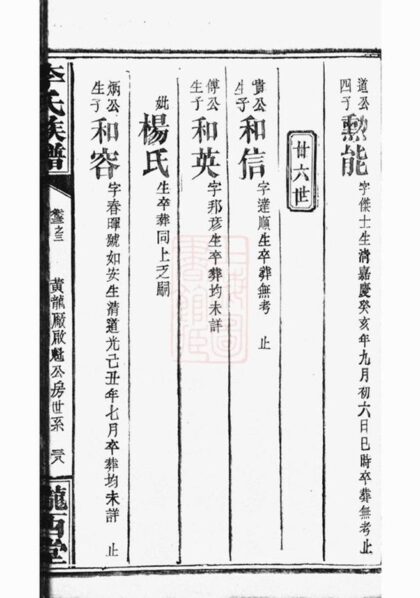 道公四子 勲能 字傑士生清嘉慶癸亥年九月初六日巳時卒葬無考止
廿六世
貴公生子 和信 字達順生卒葬無考 止
傅公生子 和英 字邦彦生卒葬均未詳
妣 楊氏 生卒葬同上乏嗣
炳公生子 和容 字春暉號如安生清道光己丑年七月卒葬均未詳 止
李氏族譜 卷之三 黄龍厰啟魁公房世系 隴西堂